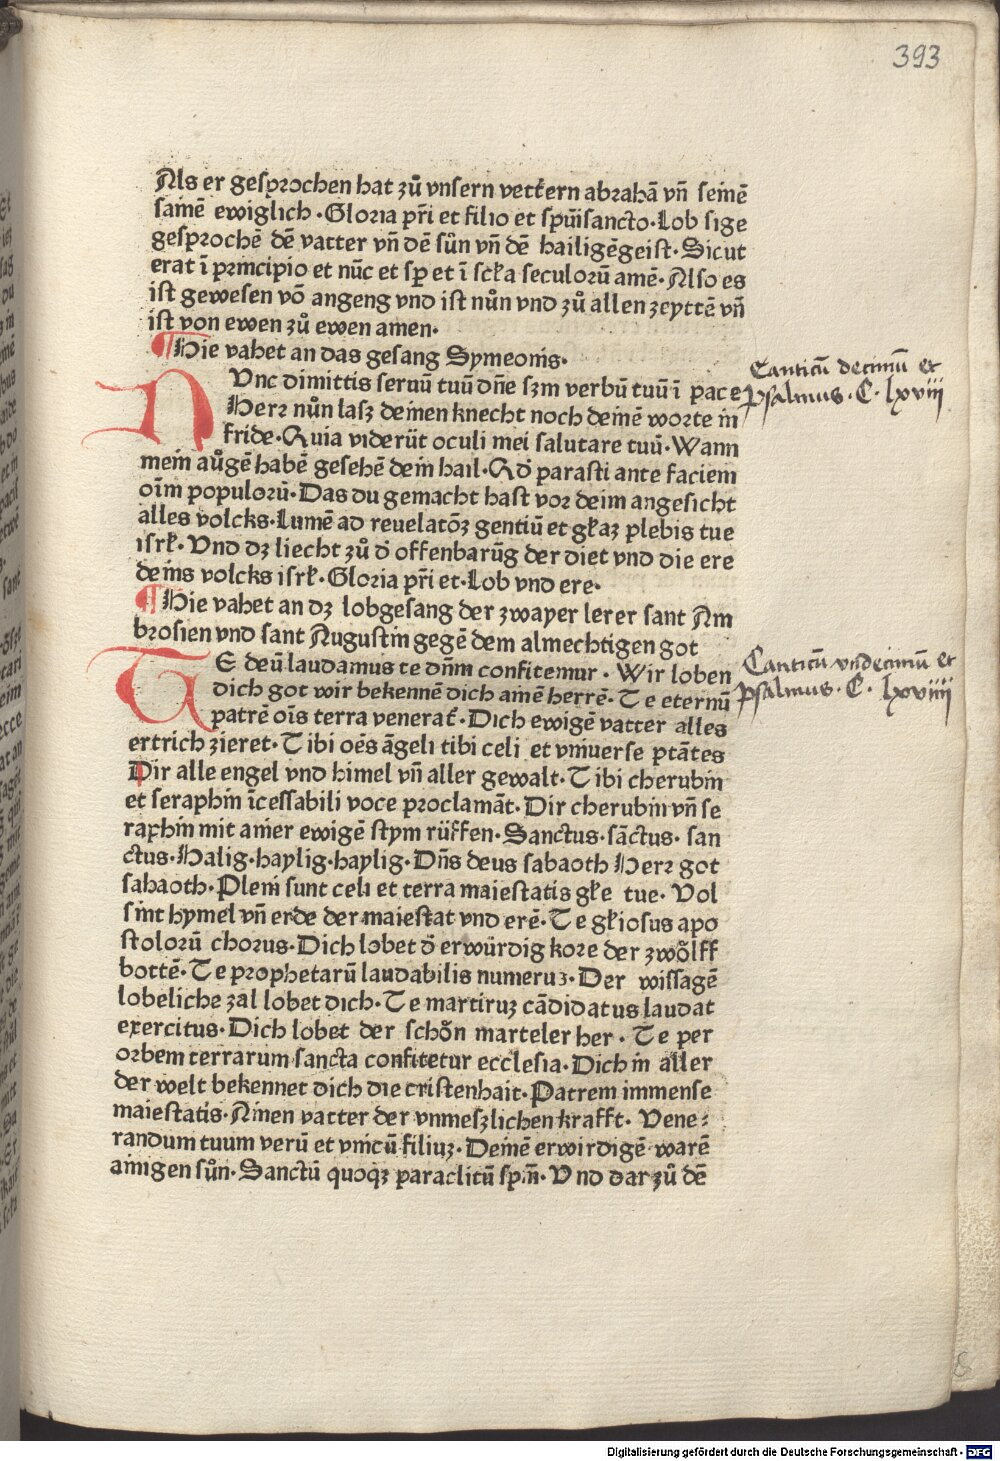 393
Als er gesprochen hat zů vnsern vetteren abrahā vn̄ seinē
samē ewiglich · Gloria pr̄i et filio et spūisancto · Lob sige
gesprochē dē vatter vn̄ dē sůn vn̄ dē hailigēgeist · Sicut
erat ī principio et nūc et sꝑ et ī scl̄a seculorū amē · Also es
ist gewesen vō angeng vnd ist nůn vnd zů allen zeyttē vn̄
ist von ewen zů ewen amen ·
¶ Hie vahet an das gesang Symeonis ·
Canticū decimū et
NVnc dimittis seruū tuū dn̄e sꝫm verbū tuū ī pace
psalmus · C · lxviii
Herr nůn lasz deinen knecht noch deinē worte in
fride · Quia viderūt oculi mei salutare tuū · Wann
mein aůgē habē gesehē dein hail · Qd̄ parasti ante faciem
oīm populorū · Das du gemacht hast vor deim angesicht
alles volcks · Lumē ad reuelatōꝫ gentiū et gl̄aꝫ plebis tue
isrl̄ · Vnd dꝫ liecht zů d̄ offenbarūg der diet vnd die ere
deins volcks isrl̄ · Gloria pr̄i et · Lob vnd ere ·
¶ Hie vahet an dꝫ lobgesang der zwayer lerer sant Am
brosien vnd sant Augustin gegē dem almechtigen got
Canticū vndecimū et
TE deū laudamus te dn̄m confitemur · Wir loben
psalmus · C · lxviiii
dich got wir bekennē dich ainē herrē · Te eternū
patrē oīs terra venerat̄ · Dich ewigē vatter alles
ertrich zieret · Tibi oēs āgeli tibi celi et vniuerse ptātes
Dir alle engel vnd himel vn̄ aller gewalt · Tibi cherubin
et seraphin īcessabili voce proclamāt · Dir cherubin vn̄ se
raphin mit ainer ewigē stym rüffen · Sanctus · sāctus · san
ctus · Halig · haylig · haylig · Dn̄s deus sabaoth Herr got
sabaoth · Pleni sunt celi et terra maiestatis gl̄e tue · Vol
sint hymel vn̄ erde der maiestat vnd erē · Te gl̄iosus apo
stolorū chorus · Dich lobet d̄ erwürdig kore der zwölff
bottē · Te prophetarū laudabilis numeruꝫ · Der wissagē
lobeliche zal lobet dich · Te martiruꝫ cādidatus laudat
exercitus · Dich lobet der schön marteler her · Te per
orbem terrarum sancta confitetur ecclesia · Dich in aller
der welt bekennet dich die cristenhait · Patrem immense
maiestatis · Ainen vatter der vnmeszlichen krafft · Vene⸗
randum tuum verū et vnicū filiuꝫ · Deinē erwirdigē warē
ainigen sůn · Sanctū quoqꝫ paraclitū sp̄m̄ · Vnd dar zů dē
Digitalisierung gefördert durch die Deutsche Forschungsgemeinschaft · DFG